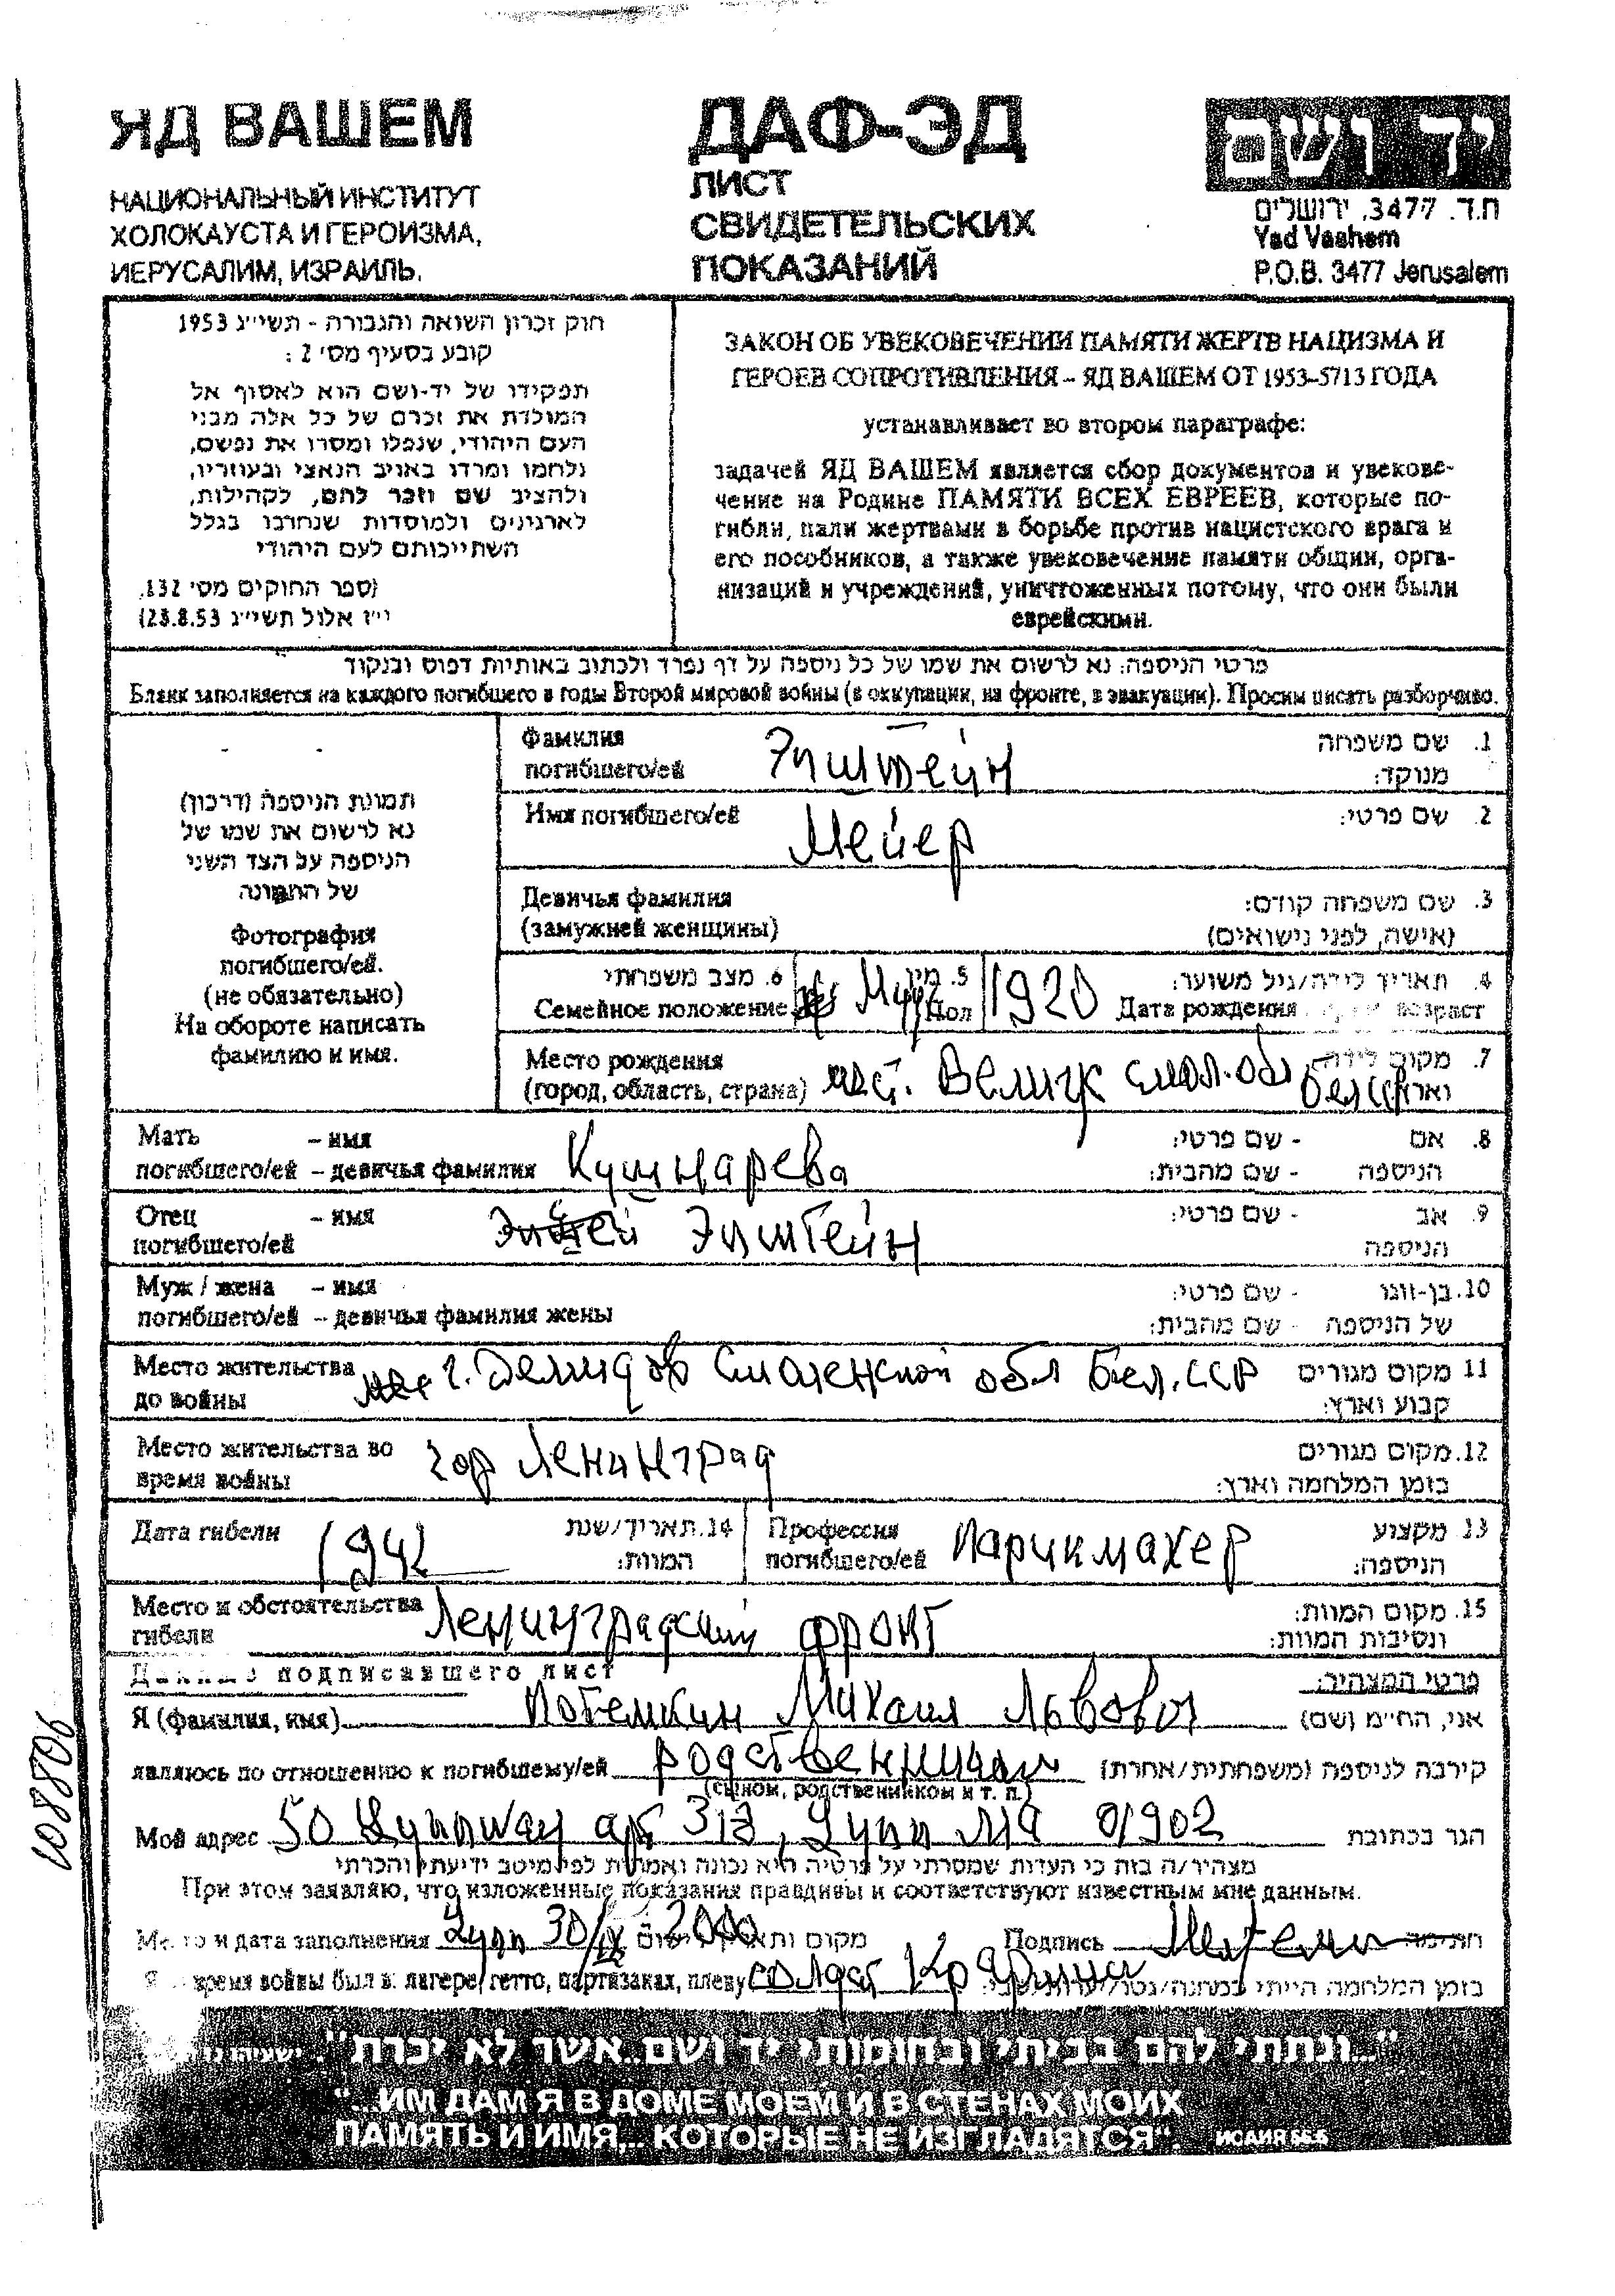 ЯД ВАШЕМ
НАЦИОНАЛЬНЫЙ ИНСТИТУТ
ХОЛОКАУСТА И ГЕРОИЗМА,
ИЕРУСАЛИМ, ИЗРАИЛЬ.
ДАФ-ЭД
ЛИСТ
СВИДЕТЕЛЬСКИХ
ПОКАЗАНИЙ
יד ושם
ת.ד. 3477, ירושלים
Yad Vashem
P.O.B. 3477 Jerusalem
חוק זכרון השואה והגבורה - תשי״ג 1953
קובע בסעיף מס׳ 2 :
תפקידו של יד-ושם הוא לאסוף אל
המולדת את זכרם של כל אלה מבני
העם היהודי, שנפלו ומסרו את נפשם,
נלחמו ומרדו באויב הנאצי ובעוזריו,
ולהציב שם וזכר להם, לקהילות,
לארגונים ולמוסדות שנחרבו בגלל
השתייכותם לעם היהודי
(ספר החוקים מס׳ 132,
י״ז אלול תשי״ג 28.8.53)
ЗАКОН ОБ УВЕКОВЕЧЕНИИ ПАМЯТИ ЖЕРТВ НАЦИЗМА И
ГЕРОЕВ СОПРОТИВЛЕНИЯ – ЯД ВАШЕМ ОТ 1953–5713 ГОДА
устанавливает во втором параграфе:
задачей ЯД ВАШЕМ является сбор документов и увекове-
чение на Родине ПАМЯТИ ВСЕХ ЕВРЕЕВ, которые по-
гибли, пали жертвами в борьбе против нацистского врага и
его пособников, а также увековечение памяти общин, орга-
низаций и учреждений, уничтоженных потому, что они были
еврейскими.
פרטי הניספה: נא לרשום את שמו של כל ניספה על דף נפרד ולכתוב באותיות דפוס ובנקוד
Бланк заполняется на каждого погибшего в годы Второй мировой войны (в оккупации, на фронте, в эвакуации). Просим писать разборчиво.
תמונת הניספה (דרכון)
נא לרשום את שמו של
הניספה על הצד השני
של התמונה
Фотография
погибшего/ей.
(не обязательно)
На обороте написать
фамилию и имя.
Фамилия
погибшего/ей Эпштейн
1. שם משפחה
מנוקד:
Имя погибшего/ей Мейер
2. שם פרטי:
Девичья фамилия
(замужней женщины)
3. שם משפחה קודם:
(אישה, לפני נישואים)
6. מצב משפחתי
Семейное положение
5. מין
Муж Пол
1920
4. תאריך לידה/גיל משוער:
Дата рождения возраст
Место рождения
(город, область, страна) мест. Велиж смол. обл. БелССР
7. מקום לידה
וארץ
Мать – имя
погибшего/ей – девичья фамилия Кушнарева
8. אם - שם פרטי:
הניספה - שם מהבית:
Отец – имя
погибшего/ей Эпштейн
9. אב - שם פרטי:
הניספה
Муж / жена – имя
погибшего/ей – девичья фамилия жены
10. בן-זוגו - שם פרטי:
של הניספה - שם מהבית:
Место жительства
до войны г. Демидов Смоленской обл Бел. ССР
11 מקום מגורים
קבוע וארץ:
Место жительства во
время войны гор Ленинград
12. מקום מגורים
בזמן המלחמה וארץ:
Дата гибели 1942
14. תאריך/שנת
המוות:
Профессия
погибшего/ей Парикмахер
13 מקצוע
הניספה:
Место и обстоятельства
гибели Ленинградский фронт
15. מקום המוות:
ונסיבות המוות:
Данные подписавшего лист
פרטי המצהיר:
Я (фамилия, имя) Потемкин Михаил Львович אני, החי״מ (שם)
являюсь по отношению к погибшему/ей родственником קירבה לניספה (משפחתית/אחרת)
(сыном, родственником и т. п.)
Мой адрес 50 Lynnway apt 313, Lynn MA 01902 הגר בכתובת
מצהיר/ה בזה כי העדות שמסרתי על פרטיה היא נכונה ואמתית לפי מיטב ידיעתי והכרתי
При этом заявляю, что изложенные показания правдивы и соответствуют известным мне данным.
Место и дата заполнения Lynn 30/IX 2000 מקום ותאריך רישום Подпись חתימה
Я во время войны был в: лагере, гетто, партизанах, плену солдат Кр Армии בזמן המלחמה הייתי במחנה/גטו/
108806
"...ונתתי להם בביתי ובחומותי יד ושם...אשר לא יכרת" ישעיהו נו
"...ИМ ДАМ Я В ДОМЕ МОЕМ И В СТЕНАХ МОИХ
ПАМЯТЬ И ИМЯ,.. КОТОРЫЕ НЕ ИЗГЛАДЯТСЯ". ИСАИЯ 56.5